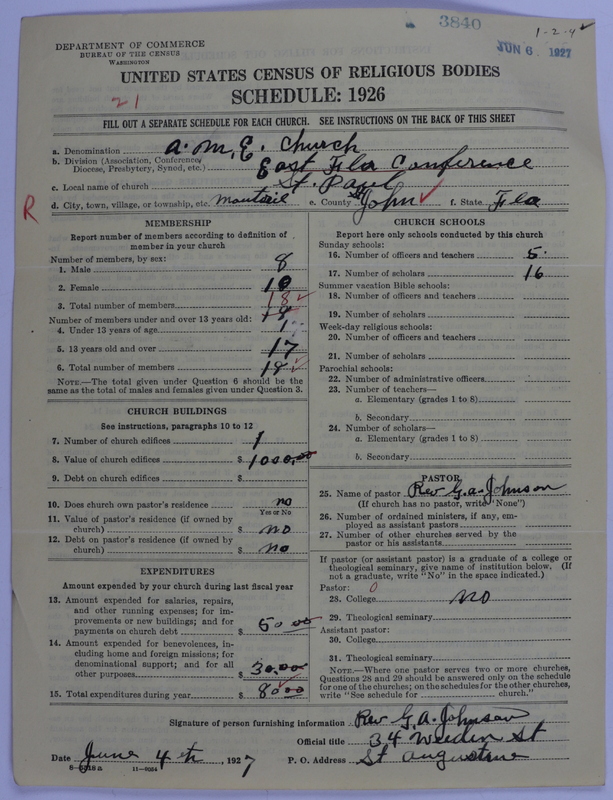 3840
1-2-4 ✓
JUN 6 1927
DEPARTMENT OF COMMERCE
BUREAU OF THE CENSUS
WASHINGTON
UNITED STATES CENSUS OF RELIGIOUS BODIES
21
SCHEDULE: 1926
FILL OUT A SEPARATE SCHEDULE FOR EACH CHURCH. SEE INSTRUCTIONS ON THE BACK OF THIS SHEET
a. Denomination A. M. E. Church
b. Division (Association, Conference, Diocese, Presbytery, Synod, etc.) East Fla Conference
c. Local name of church St. Paul
R
d. City, town, village, or township, etc. e. County St John ✓ f. State Fla
MEMBERSHIP
Report number of members according to definition of
member in your church
Number of members, by sex:
1. Male 8
2. Female 10
3. Total number of members 18 ✓
Number of members under and over 13 years old:
4. Under 13 years of age 1
5. 13 years old and over 17
6. Total number of members 18 ✓
NOTE.—The total given under Question 6 should be
same as the total of males and females given under Question 3.
CHURCH BUILDINGS
See instructions, paragraphs 10 to 12
7. Number of church edifices 1
8. Value of church edifices $ 1000.00
9. Debt on church edifices $
10. Does church own pastor's residence no
Yes or No
11. Value of pastor's residence (if owned by
church) $ no
12. Debt on pastor's residence (if owned by
church) $ no
EXPENDITURES
Amount expended by your church during last fiscal year
13. Amount expended for salaries, repairs,
and other running expenses; for im-
provements or new buildings; and for
payments on church debt $ 50 00
14. Amount expended for benevolences, in-
cluding home and foreign missions; for
denominational support; and for all
other purposes $ 30.00
15. Total expenditures during year $ 80 00
CHURCH SCHOOLS
Report here only schools conducted by this church
Sunday schools:
16. Number of officers and teachers 5
17. Number of scholars 16
Summer vacation Bible schools:
18. Number of officers and teachers
19. Number of scholars
Week-day religious schools:
20. Number of officers and teachers
21. Number of scholars
Parochial schools:
22. Number of administrative officers
23. Number of teachers—
a. Elementary (grades 1 to 8)
b. Secondary
24. Number of scholars—
a. Elementary (grades 1 to 8)
b. Secondary
PASTOR
25. Name of pastor Rev G. A. Johnson
(If church has no pastor, write "None")
26. Number of ordained ministers, if any, em-
ployed as assistant pastors
27. Number of other churches served by the
pastor or his assistants
If pastor (or assistant pastor) is a graduate of a college or
theological seminary, give name of institution below. (If
not a graduate, write "No" in the space indicated.)
Pastor: 0
28. College no
29. Theological seminary
Assistant pastor:
30. College
31. Theological seminary
NOTE.—Where one pastor serves two or more churches,
Questions 28 and 29 should be answered only on the schedule
for one of the churches; on the schedules for the other churches,
write "See schedule for church."
Signature of person furnishing information Rev G. A. Johnson
Official title 34 Weeden St
Date June 4th, 1927 P. O. Address St Augustine